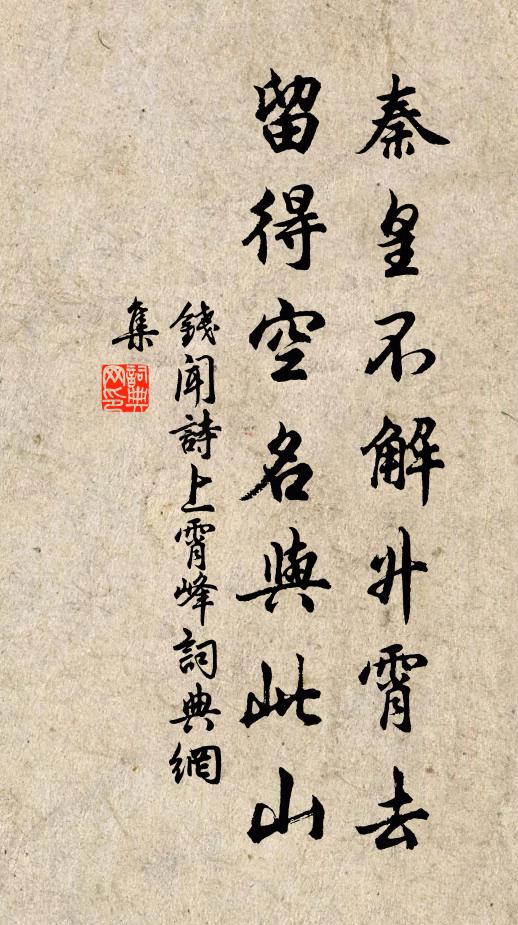 秦皇不解升霄去
留得空名與此山
錢聞詩上霄峰詞典網
集
詞典
网印